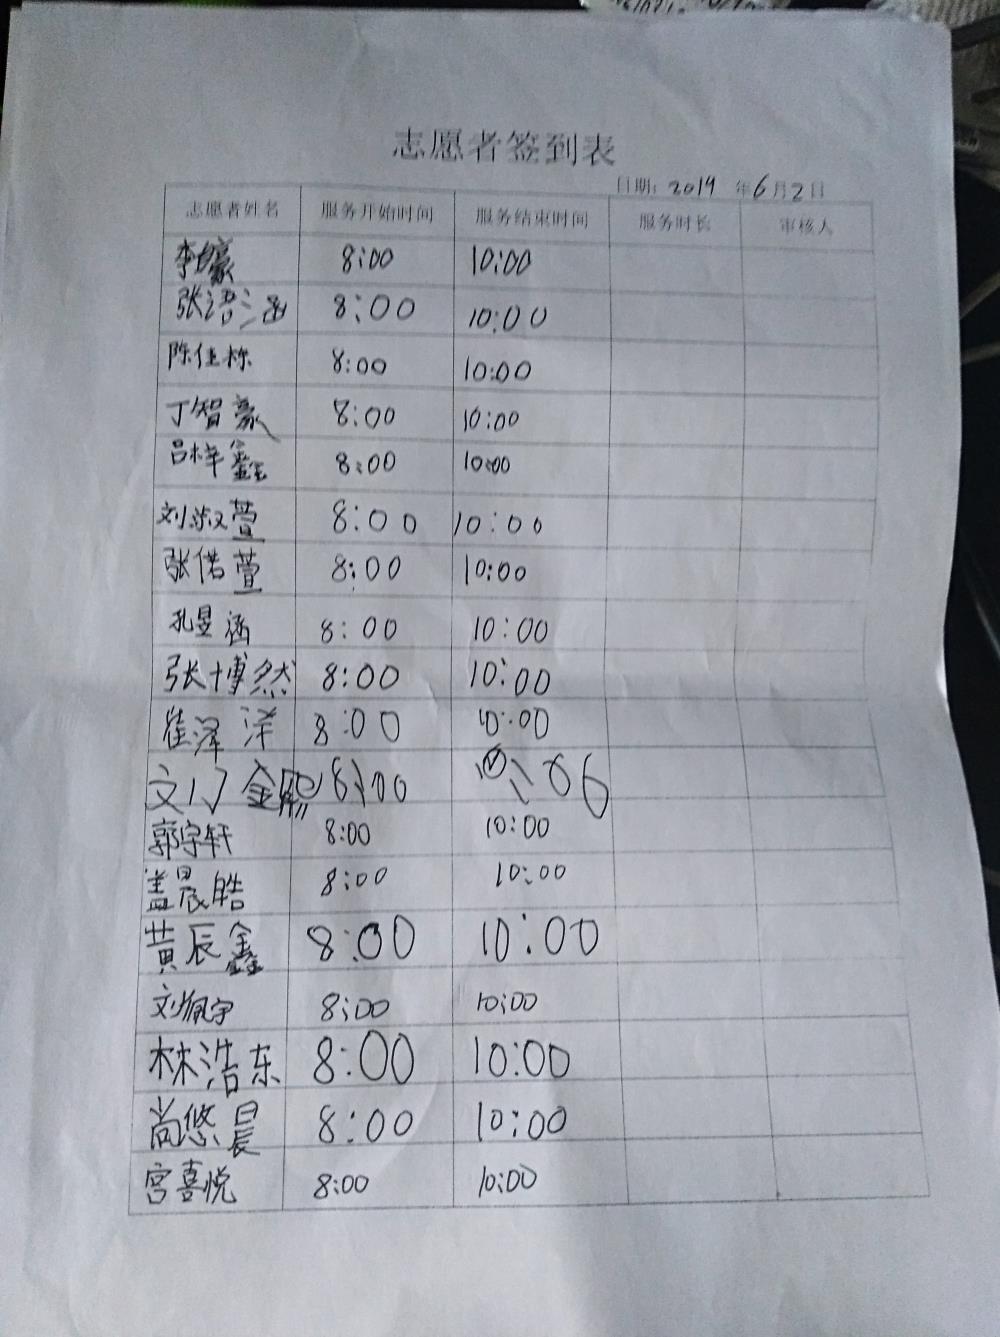 志愿者签到表
日期: 2019 年6月2日
志愿者姓名 服务开始时间 服务结束时间 服务时长 审核人
李 豪 8:00 10:00
张浯涵 8:00 10:00
陈佳栋 8:00 10:00
丁智豪 8:00 10:00
吕梓鑫 8:00 10:00
刘淑萱 8:00 10:00
张偌萱 8:00 10:00
孔昱涵 8:00 10:00
张博然 8:00 10:00
崔泽洋 8:00 10:00
8:00
郭宇轩 8:00 10:00
盖晨皓 8:00 10:00
黄辰鑫 8:00 10:00
刘佩宇 8:00 10:00
林浩东 8:00 10:00
尚悠晨 8:00 10:00
宫喜悦 8:00 10:00